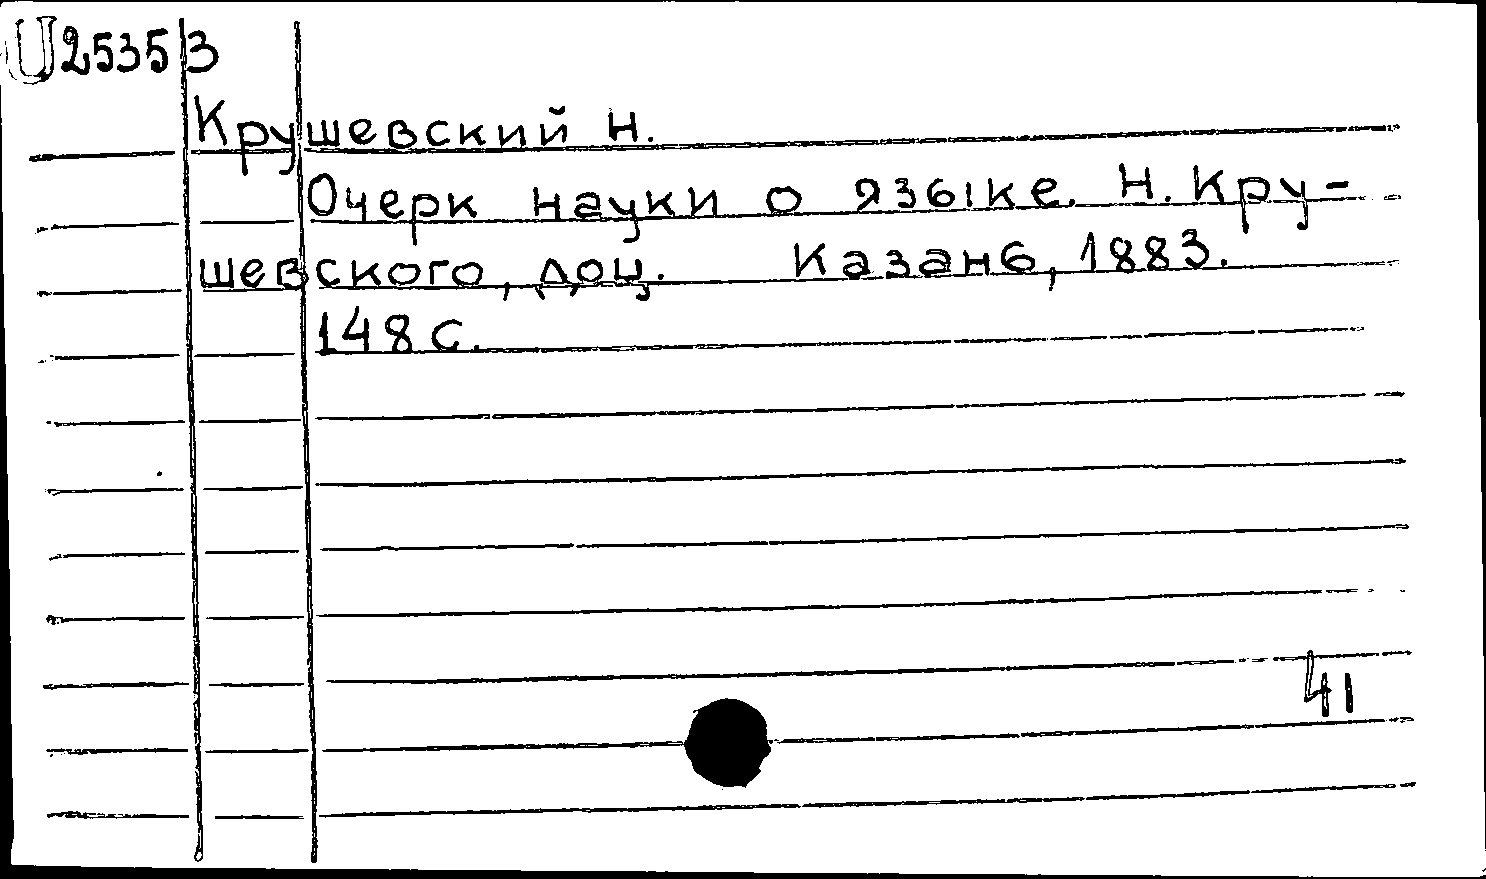 U25353
Крушевский Н.
Очерк науки о языке. Н. Кру-
шевского, доц. Казань, 1883.
148 с.
41